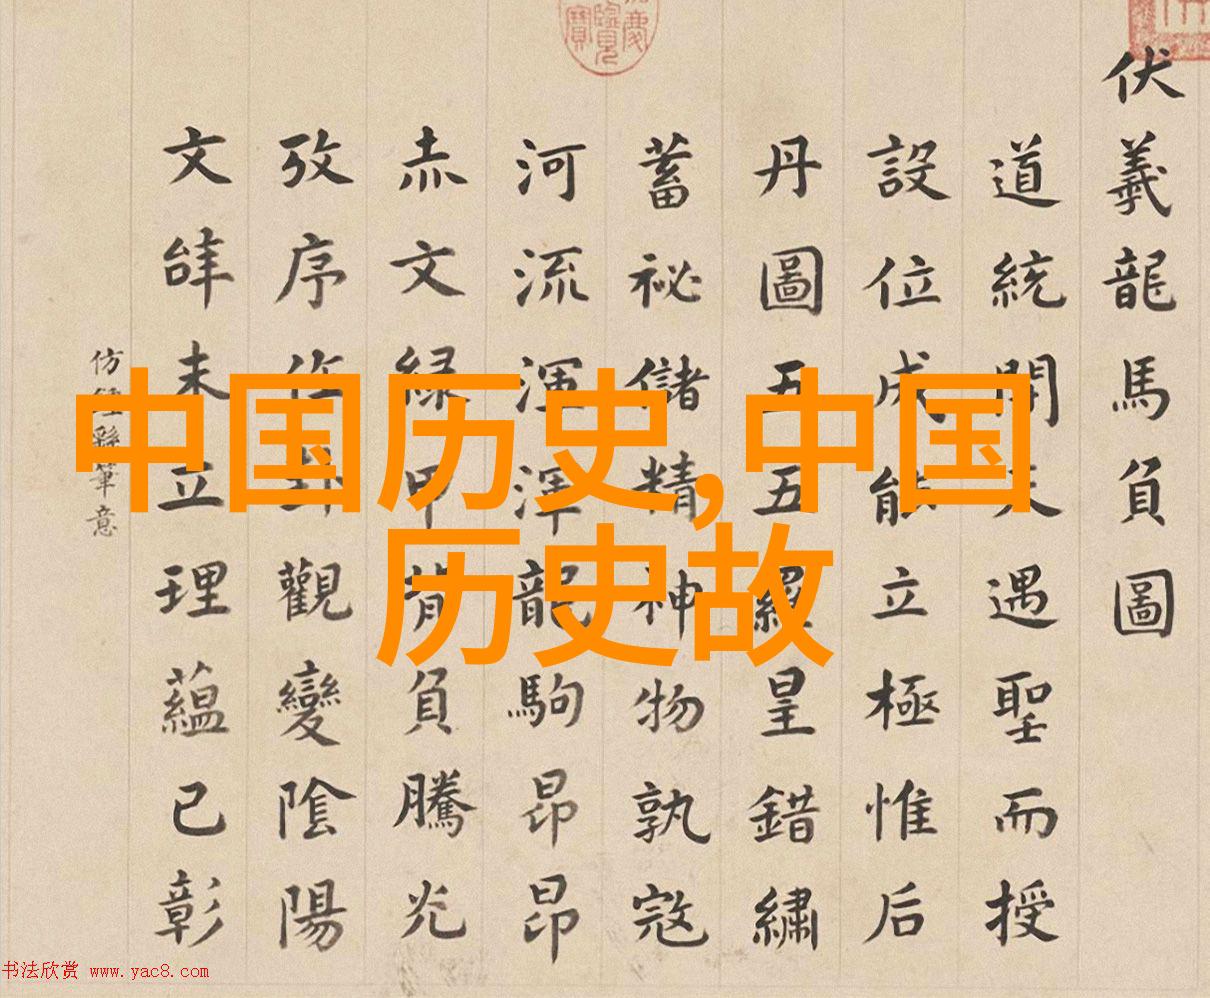 伏羲龍馬負圖
道統開天遇聖而授
設位成能立極惟后
丹圖五五羅皇錯繡
蓄祕儲精神物孰寇
河流渾渾龍駒昂昂
赤文綠甲背負騰光
攷序作卦觀變陰陽
文辞未立理蘊已彰
仿經孫筆意
中国历史,中国
历史故
书法欣赏 www.yac8.com